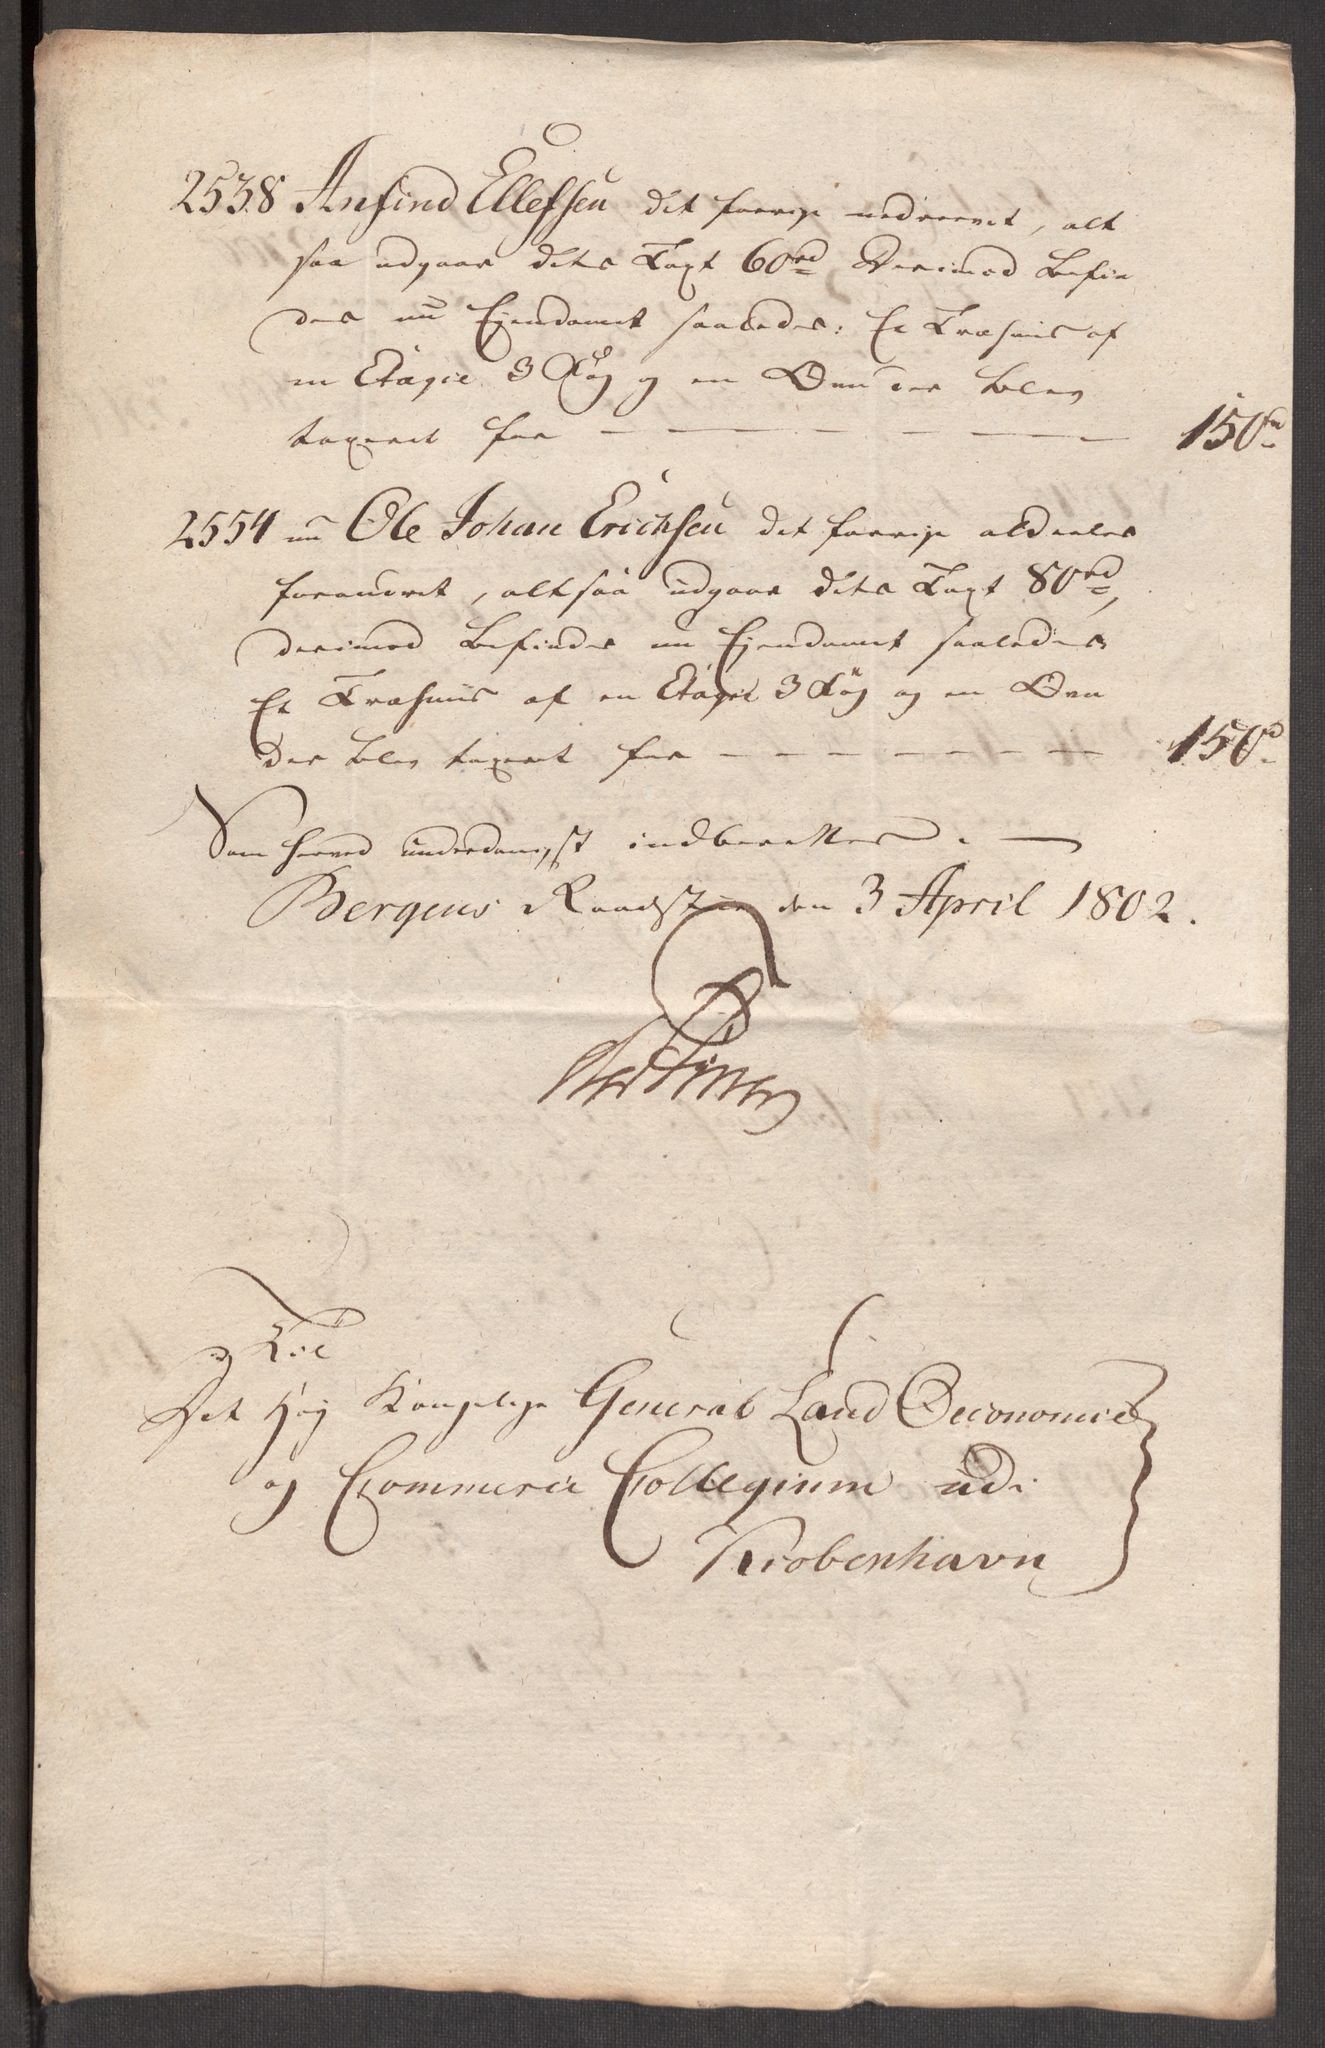 2538 Anfind Ellefsen det forrige nedrevet, alt
saa udgaar dets Taxt 60 rd Derimod befin
des nu Ejendomet saaledes: Et Træhuus af
en Etagie 3 Fag og en Ovn der blev
taxeret for — — — — — — 150 rd
2554 nu Ole Johan Erichsen det forrige aldeeles
forandret, altsaa udgaar dets Taxt 80 rd,
derimod befindes nu Ejendomet saaledes
Et Træhuus af en Etagie 3 Fag og en Ovn
der blev taxeret for — — — — — — — 150 rd
Som herved underdanigst indberettes. —
Bergens Raadstue den 3 April 1802.
Til
Det Høy Kongelige General Land Oeconomie
og Commerce Collegium udi
Kiøbenhavn